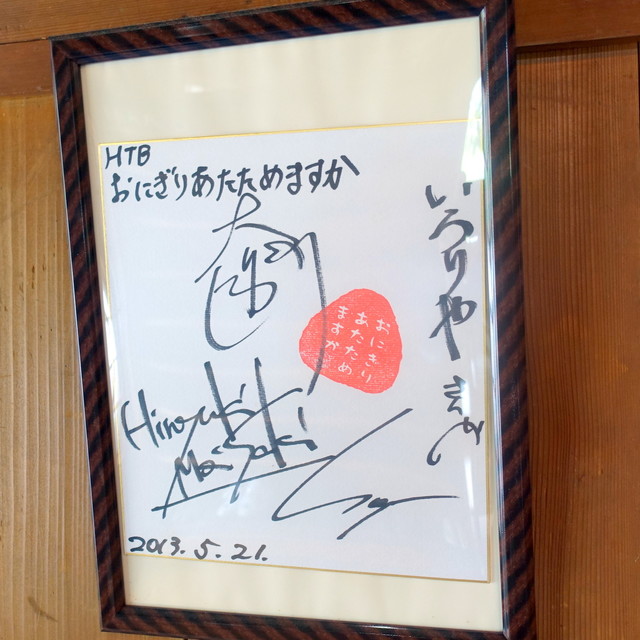 HTB
おにぎりあたためますか
いろりや さん
おにぎり
あたため
ますか
Hiroyuki
Morisaki
2013.5.21.